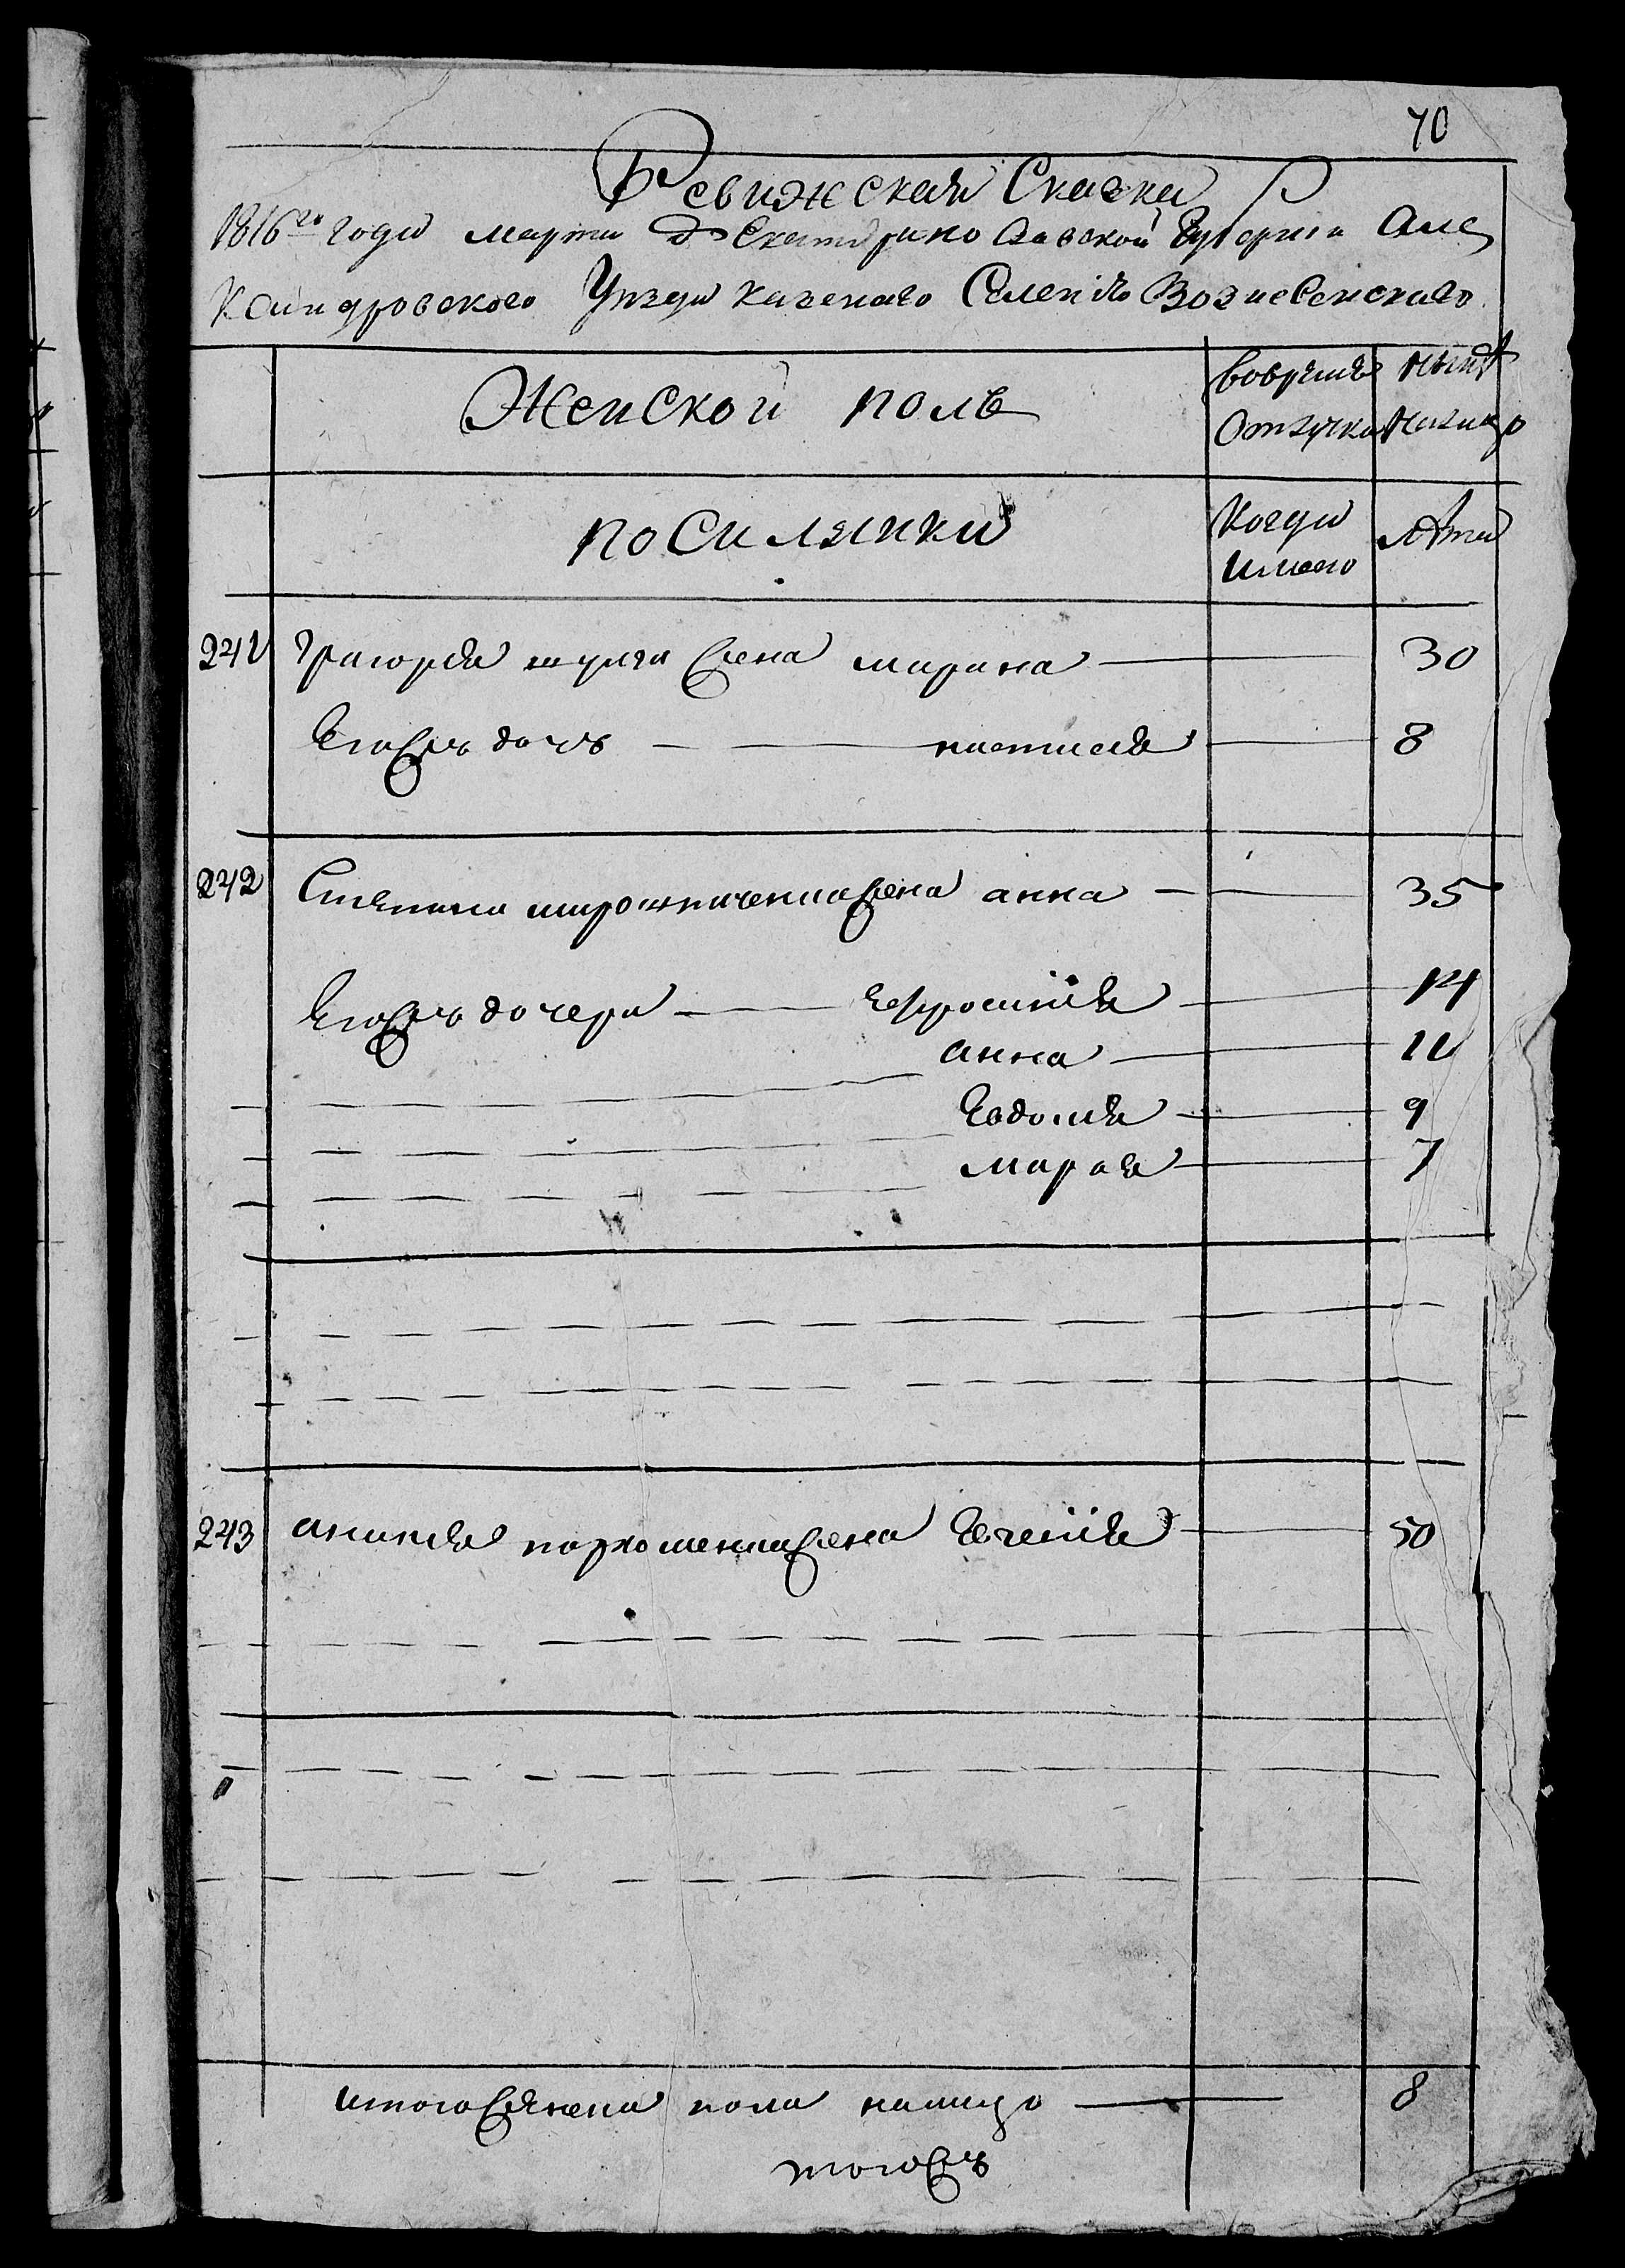 70
Ревижская Сказка
1816го года марта д Екатерино славской Губернии Алек
Сандровского Уезда казенаго Селения Вознесенскаго
Женской полъ
вовремен
отлучки
ныне
налицо
посилянки
Когда
имено
лета
241 Григория жена марина 30
Егожъ дочъ настасия 8
242 Степана мирошниченка жена анна 35
Егожъ дочери ефросиния 14
анна 11
Евдокия 9
мария 7
243 пархоменка жена 50
итого женска пола налицо 8
тогожъ